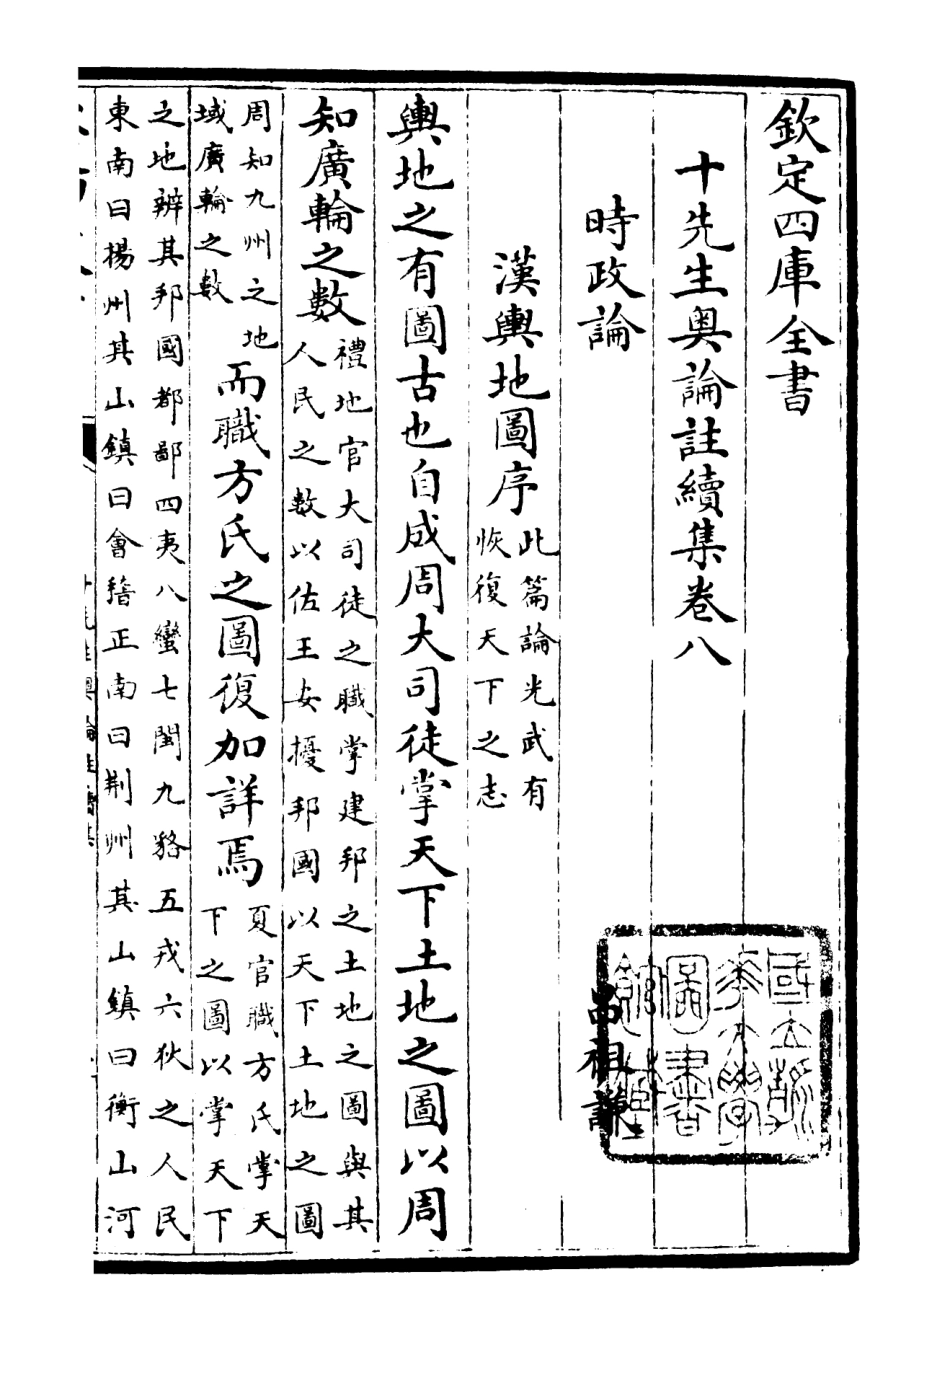 欽定四庫全書
十先生奥論註續集卷八
時政論
吕祖謙
漢輿地圖序
此篇論光武有
恢復天下之志
輿地之有圖古也自成周大司徒掌天下土地之圖以周
知廣輪之數
禮地官大司徒之職掌建邦之土地之圖與其
人民之數以佐王安擾邦國以天下土地之圖
周知九州之地
域廣輪之數
而職方氏之圖復加詳焉
夏官職方氏掌天
下之圖以掌天下
之地辨其邦國都鄙四夷八蠻七閩九貉五戎六狄之人民
東南曰揚州其山鎮曰會稽正南曰荆州其山鎮曰衡山河